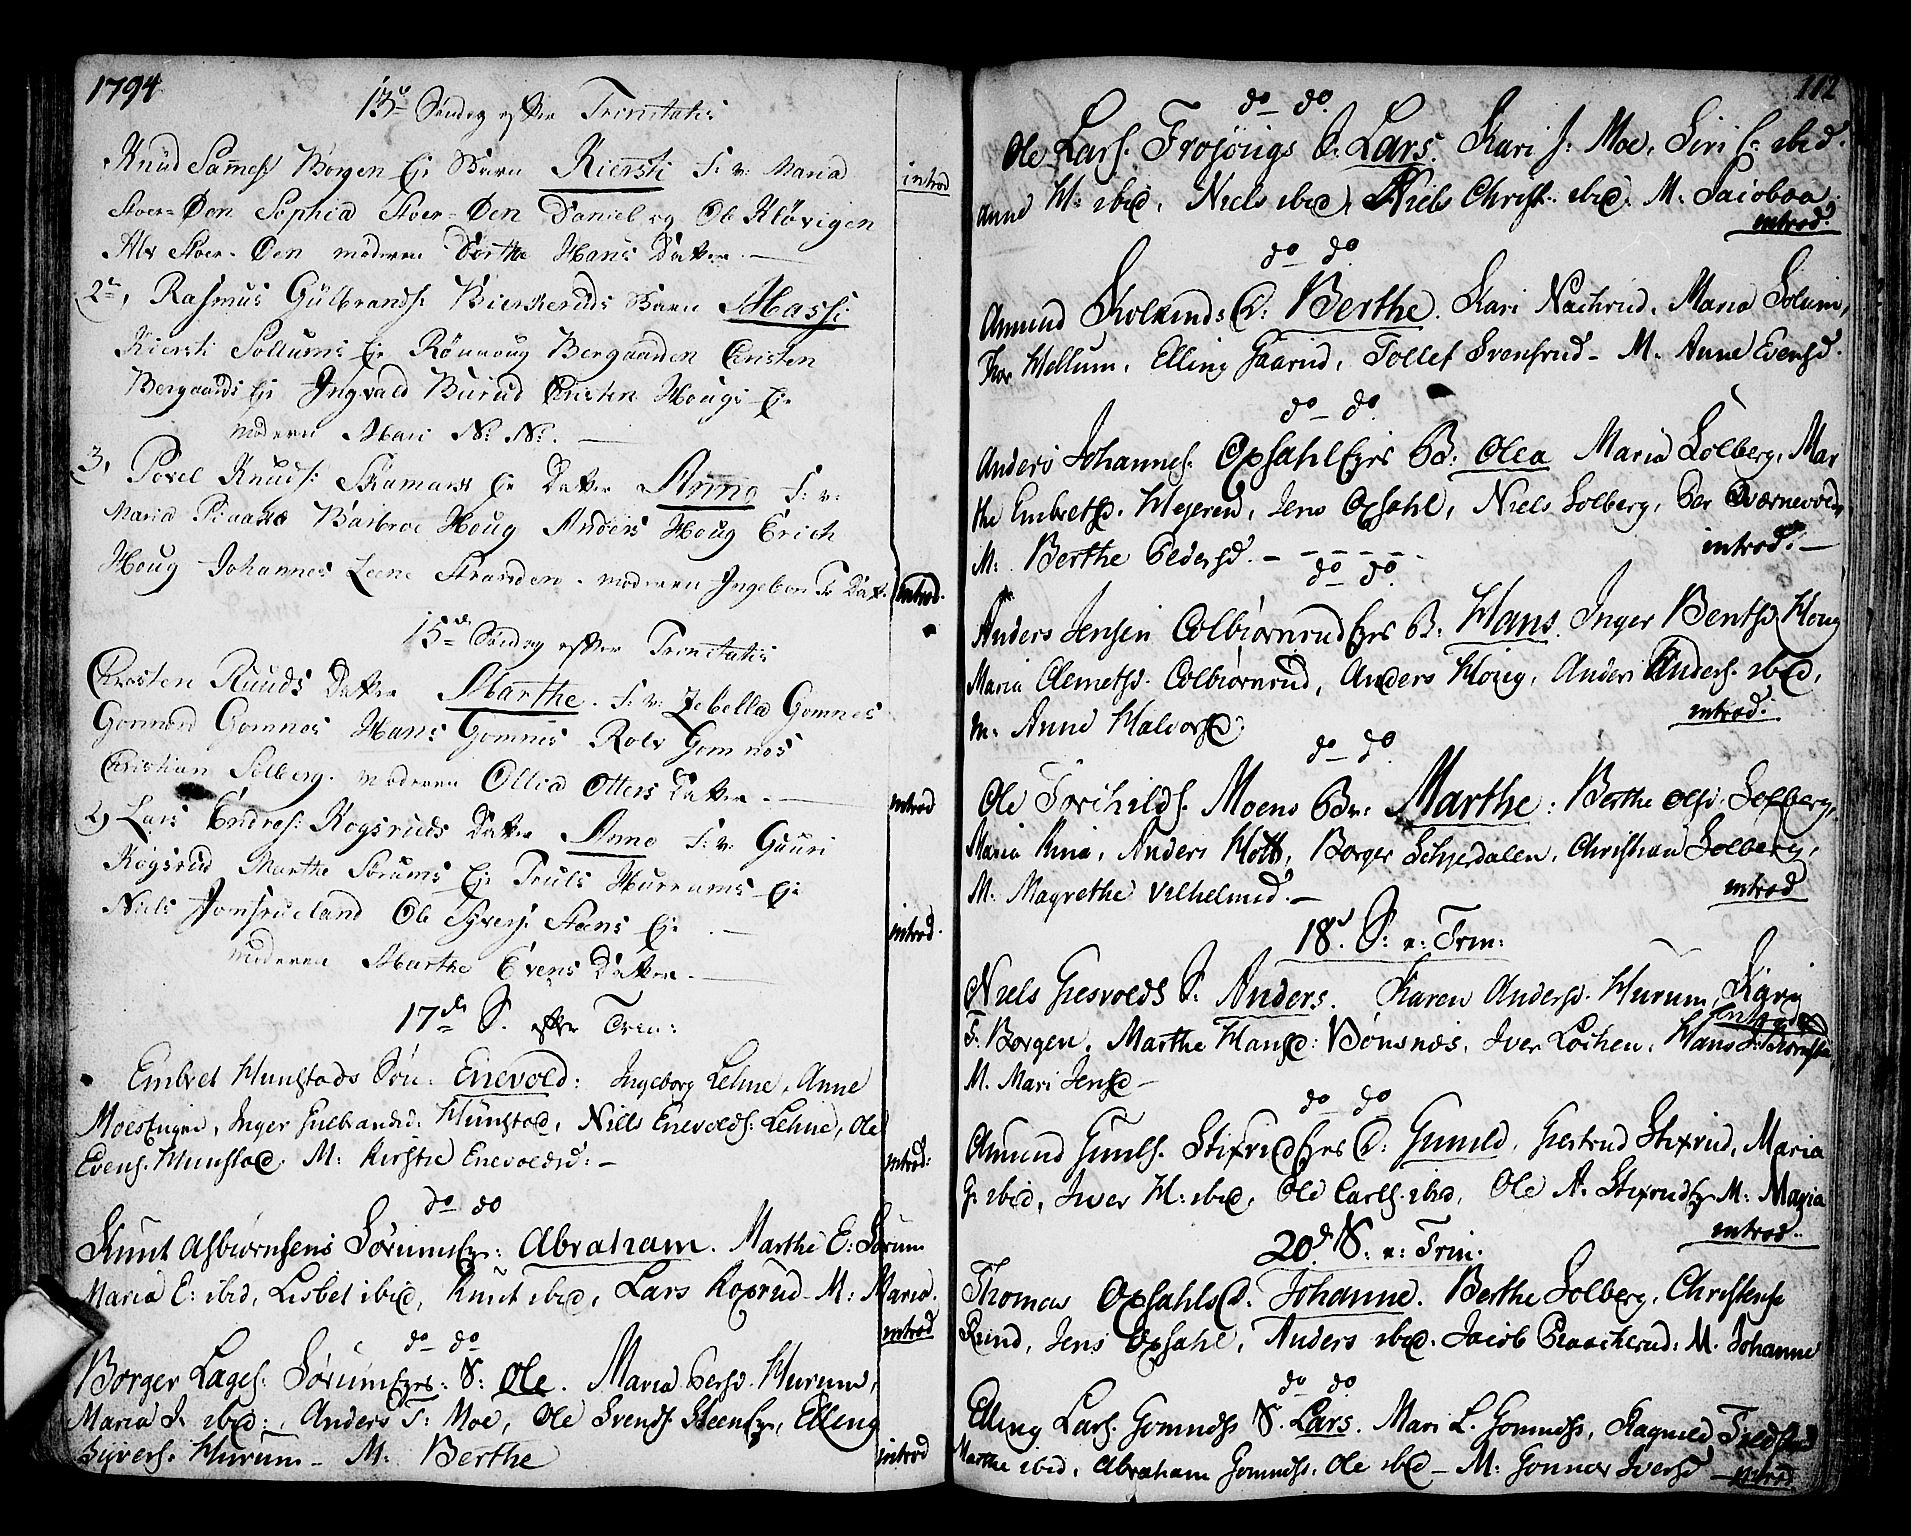 1794
13de Søndag efter Trinitatis
Knud Samés: Borgen Eje Barn Kiersti F: v: Maria
introd
Stoer-Øen Sophia Stoer-Øen Daniel og Ole Kløvigen
Alv Stoer-Øen moderen Dorthe Hans Datter. —
2, Rasmus Gulbrands: Bierkeruds Barn Massi
Kiersti Sollums Eje Rønnoug Bergaarden Christen
Bergaards Eje Ingvald Burud Christen Hougs Eje
moderen Mari N: N: —
3, Povel Knuds: Eje Datter Anne F: v:
Maria Barbroe Houg Anders Houg Erich
Houg Johannes Leene Stranden. moderen Ingebor Dat.
introd.
15de Søndag efter Trinitatis
Christen Ruuds Datter Marthe. F: v: Zebella Gomnes
Gomnes Hans Gomnes Rolv Gomnes
Christian Solberg. moderen Ollia Otters Datter. —
introd
2, Lars Endres: Rogsruds Datter Anne F: v: Guuri
Rogsrud Marthe Sørums Eje Truls Hurrums Eje
Niels Ole Syvers: Steens Eje. —
introd.
moderen Marthe Evens Datter. —
17de S. efter Trin:
Embret Hunstads Søn: Enevold: Ingeborg Lehne, Anne
Moes, Inger Gulbrandsd: Hunstad, Nills Enevolds: Lehne, Ole
Evens. Hunstad. M: Kirstie Enevoldsd: —
introd:
do do
Knut Asbiørnsens Sørums: Abraham. Marthe E: Sørum
Maria E: ibid, Lisbet ibid, Knut ibid, Lars Roxrud. M: Maria.
introd
do do
Borger Lages. Sørum: S: Ole. Maria Persd. Hurum,
Maria J. ibid:, Anders T: Moe, Ole Svends. Steen, Elling
Syvers. Hurum — M: Berthe
introd
112
do — do
Ole Lars. Frojougs D: Lars. Kari J: Moe, Siri E: ibid.
Anne H: ibid, Niels ibid, Niels Christ: ibid. M. Jacoboa.
introd.
do do
Amund D: Berthe. Kari Nachrud, Maria Solum,
Thor Hellum, Elling Gaarud, Tollef Svensrud — M. Anne Evensd.
do — do
Anders Johannes. Opsahl B: Olea Maria Solberg, Mar
the Embretsd. Hejeren, Jens Opsahl, Niels Solberg, Per
introd. —
M: Berthe Pedersd. — — — —
do do
Anders Jensen Colbiørnrud B: Hans. Inger Bentsd. Houg
Maria Clemetsd. Colbiørnrud, Anders Houg, Anders Anders. ibid,
introd.
M: Anne Halvorsd.
do — do
Ole Torchilds. Moens B: Marthe: Berthe Olsd. Solberg,
Maria Ruia, Anders Hott, Borger Schjerdalen, Christian Solberg,
introd
M. Magrethe Vilhelmsd. —
18d. S: e: Trin:
Niels Gjesvolds S. Anders. Karen Andersd. Hurum, Kari
introd
T: Borgen, Marthe Hansd: Bønsnes, Iver Løchen,
M. Mari Jensd —
do do
Amund Guuls. Stixrud D: Gunild. Giertrud Stixrud, Maria
G: ibid, Iver H: ibid, Ole Carls. ibid, Ole A. Stixrud M: Maria
introd.
20d S: e: Trin.
Thomas Opsahls D. Johanne. Berthe Solberg, Christense
Ruud, Jens Opsahl, Anders ibid. Jacob Braacherud: M. Johanne
do do
Elling Lars. Gomnes S. Lars. Mari L. Gomnes, Ragnild
Marthe ibid, Abraham Gomnes, Ole ibid — M: Gonner Iversd — introd.